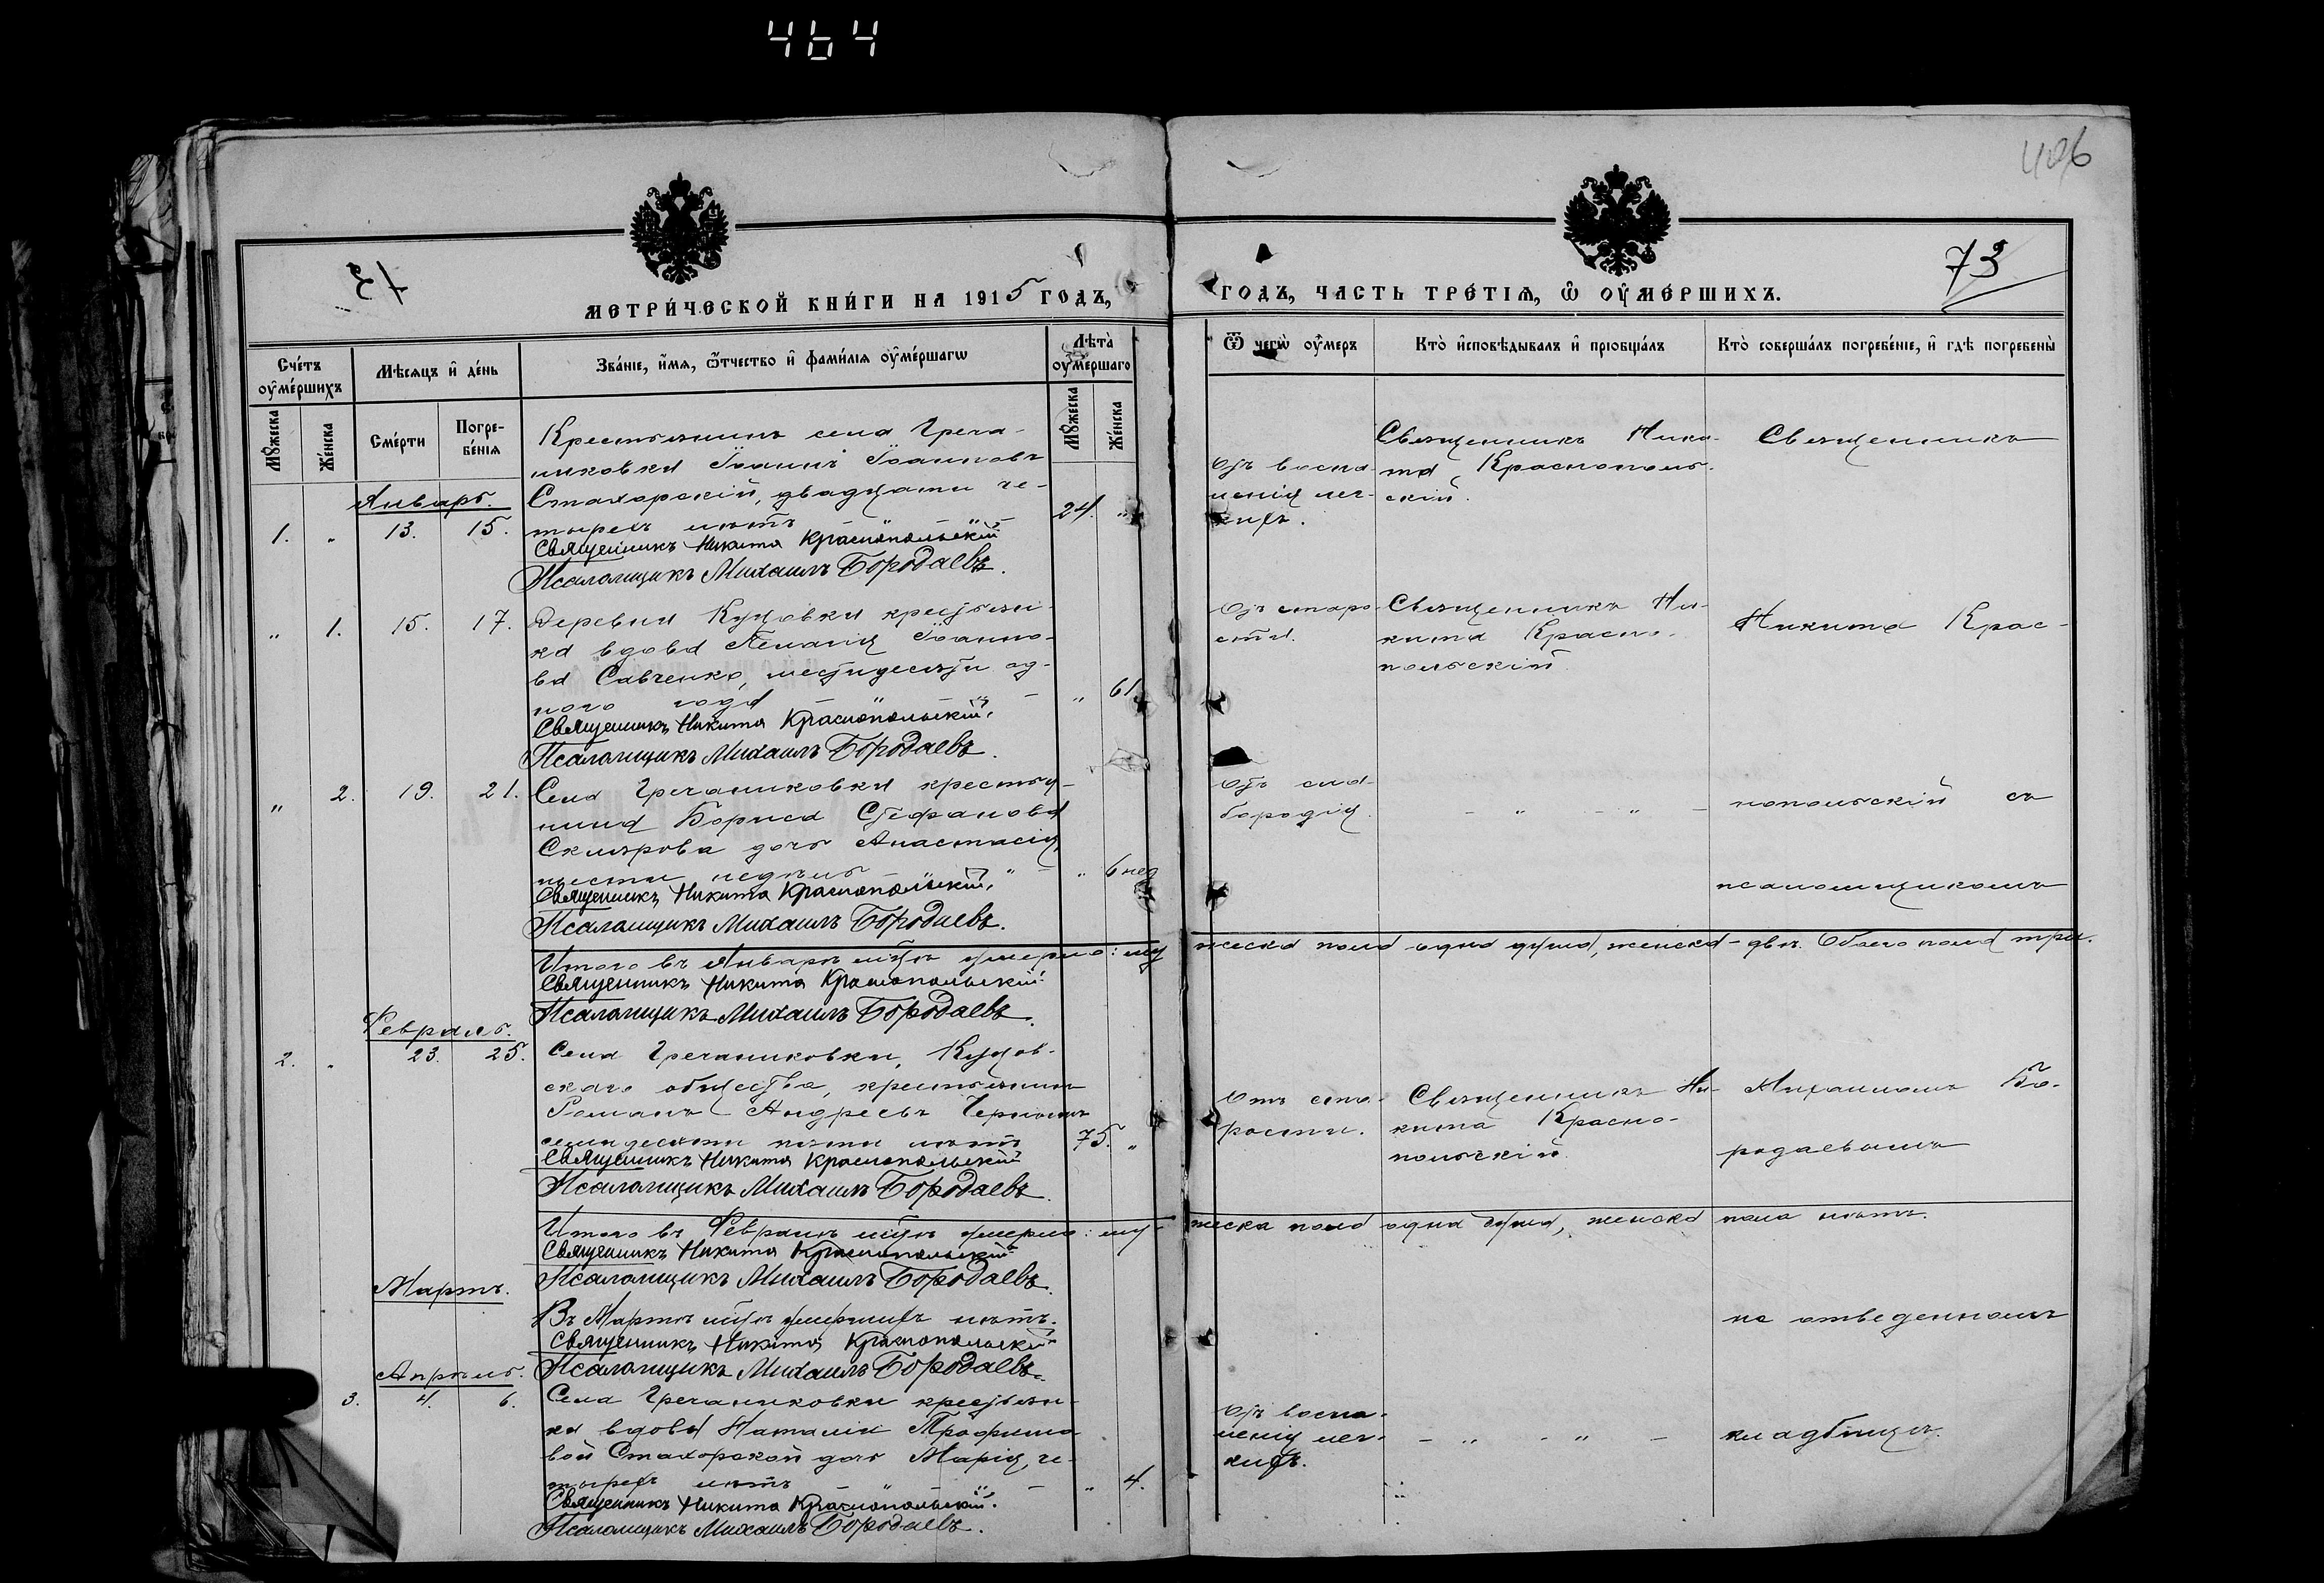 464
406
73
73
МЕТРИЧЕСКОЙ КНИГИ НА 1915 ГОДЪ,
ГОДЪ, ЧАСТЬ ТРЕТІЯ, Ѡ ОУМЕРШИХЪ.
Счетъ оумершихъ
Мѣсяцъ и день
Званіе, имя, ѿтчество и фамилія оумершагѡ
Лѣта оумершаго
Ѿ чегѡ оумеръ
Кто исповѣдывалъ и пріобщалъ
Кто совершалъ погребеніе, и гдѣ погребены
Мꙋжеска
Женска
Смерти
Погребенія
Мꙋжеска
Женска
Январь.
1. " 13. 15.
Крестьянинъ села Греча-
никовки Іоаннъ Іоанновъ
Стахорскій, двадцати че-
тырехъ лѣтъ
24. "
Священникъ Никита Краснопольскій
Псаломщикъ Михаилъ Бородаевъ.
Отъ воспа-
ленія лег-
кихъ.
Священникъ Ники-
та Краснополь-
скій.
Священникъ
" 1. 15. 17.
Деревни Куцовки крестьян-
ка вдова Пелагія Іоанно-
ва Савченко, шестидесяти од-
ного года
" 61
Священникъ Никита Краснопольскій.
Псаломщикъ Михаилъ Бородаевъ.
Отъ старо-
сти.
Священникъ Ни-
кита Красно-
польскій.
Никита Крас-
" 2. 19. 21.
Села Гречаниковки крестья-
нина Бориса Стефанова
Склярова дочь Анастасія,
шести недѣль
" 6 нед
Священникъ Никита Краснопольскій.
Псаломщикъ Михаилъ Бородаевъ.
Отъ сла-
бородія.
- " - " -
нопольскій съ
псаломщикомъ
Итого въ Январѣ мцѣ умерло: му
жеска пола одна душа, женска - двѣ. Обоего пола три.
Священникъ Никита Краснопольскій
Псаломщикъ Михаилъ Бородаевъ.
Февраль.
2. " 23. 25.
Села Гречаниковки, Куцов-
скаго общества, крестьянинъ
Романъ Андреевъ
семидесяти пяти лѣтъ
75. "
Священникъ Никита Краснопольскій
Псаломщикъ Михаилъ Бородаевъ.
Отъ ста-
рости.
Священникъ Ни-
кита Красно-
польскій.
Михаиломъ Бо-
родаевымъ
Итого въ Февралѣ мцѣ умерло: му-
жеска пола одна душа, женска пола нѣтъ.
Священникъ Никита Краснопольскій
Псаломщикъ Михаилъ Бородаевъ.
Мартъ.
Въ Мартѣ мцѣ умершихъ нѣтъ.
Священникъ Никита Краснопольскій
Псаломщикъ Михаилъ Бородаевъ.
на отведенномъ
Апрѣль.
3. 4. 6.
Села Гречаниковки крестьян-
ки вдовы Наталіи Трофимо-
вой Стахорской дочь Марія, че-
тырехъ лѣтъ
" 4.
Священникъ Никита Краснопольскій.
Псаломщикъ Михаилъ Бородаевъ.
Отъ воспа-
ленія лег-
кихъ.
- " - " -
кладбищѣ.